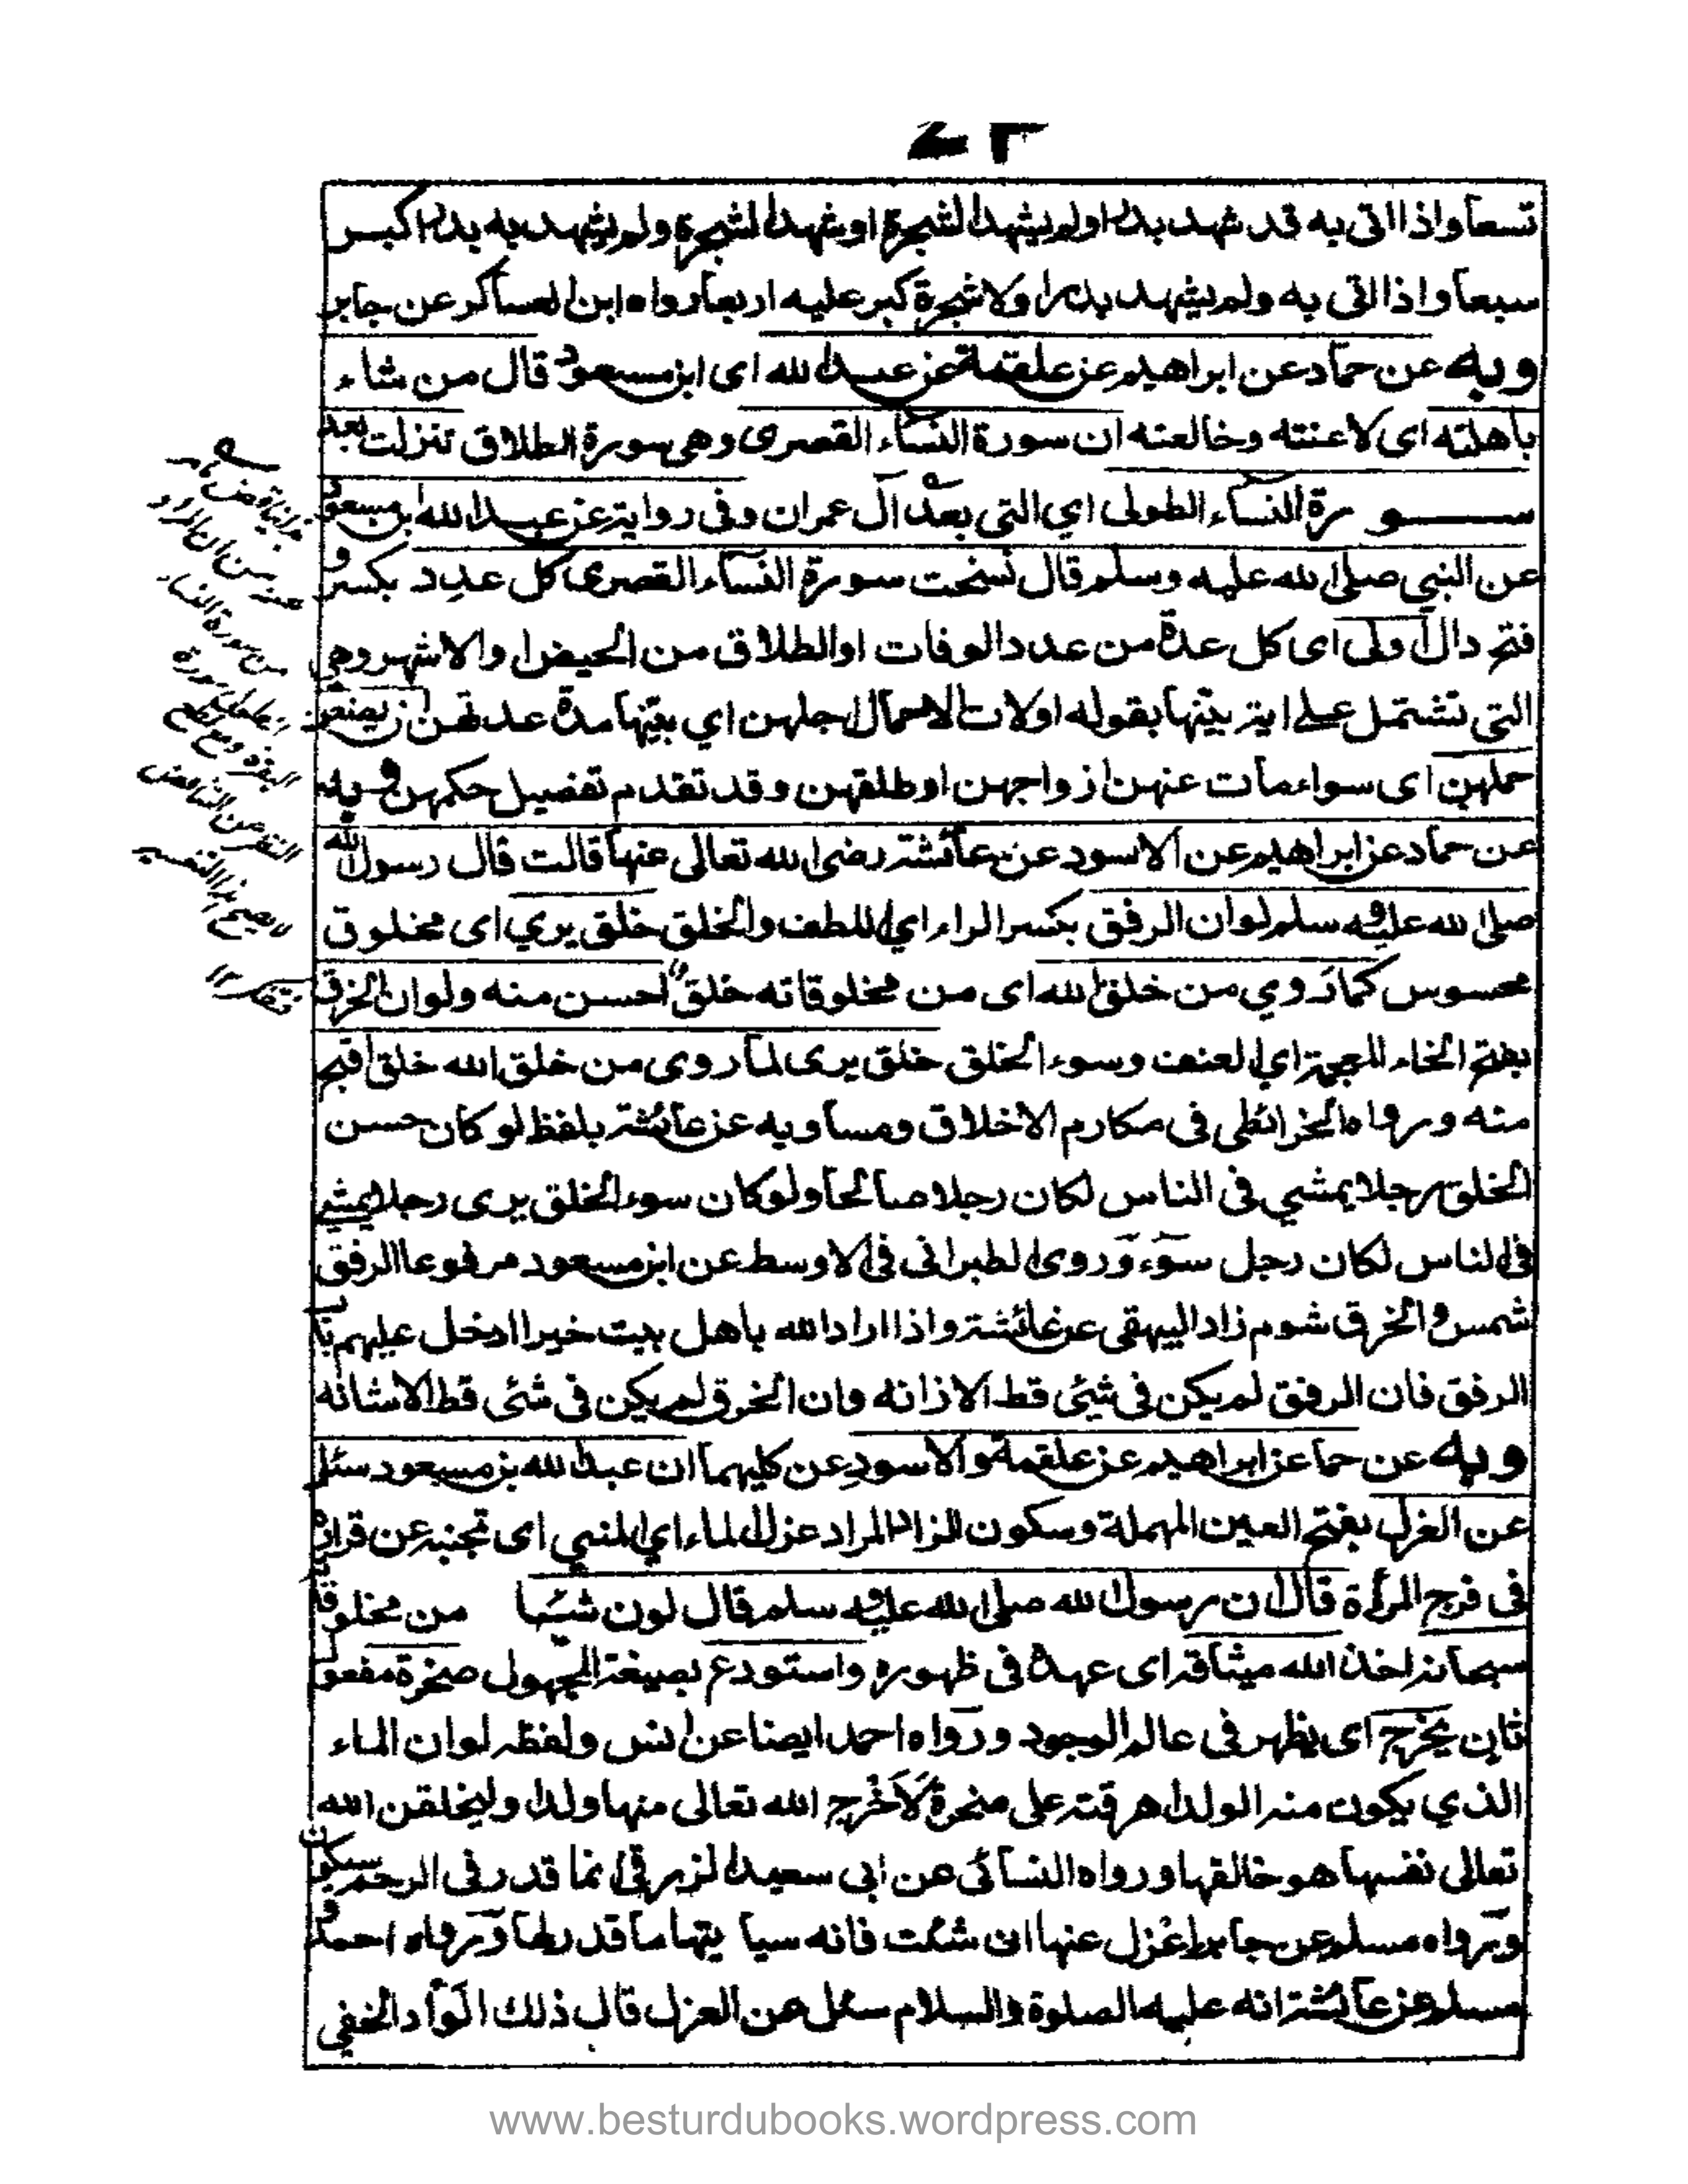 تسعا واذا اتى به قد شهد بدرا ولم يشهد الشجرة او شهد الشجرة ولم يشهد به بدرا كبر
سبعا واذا اتى به ولم يشهد بدرا ولا شجرة كبر عليه اربعا رواه ابن العساكر عن جابر
وبه عن حماد عن ابراهيم عن علقمة عن عبد الله اى ابن مسعود قال من شاء
باهلته اى لاعنته وخالعته ان سورة النساء القصرى وهى سورة الطلاق تنزلت بعد
سورة النساء الطولى اي التى بعد آل عمران وفى رواية عن عبد الله بن مسعود
عن النبي صلى الله عليه وسلم قال نسخت سورة النساء القصرى كل عدد بكسر و
فتح دال اولى اى كل عدة من عدد الوفات او الطلاق من الحيض او الاشهر وهى
التى تشتمل على اية بينها بقوله اولات الاحمال اجلهن اي بينها مدة عدتهن ان يضعن
حملهن اى سواء مات عنهن ازواجهن او طلقهن وقد تقدم تفصيل حكمهن وبه
عن حماد عن ابراهيم عن الاسود عن عائشة رضى الله تعالى عنها قالت قال رسول الله
صلى الله عليه وسلم لو ان الرفق بكسر الراء اي اللطف والخلق خلق يري اى مخلوق
محسوس كما روي من خلق الله اى من مخلوقاته خلق احسن منه ولو ان الخرق
بفتح الخاء المعجمة اي العنف وسوء الخلق خلق يرى لما روى من خلق الله خلق اقبح
منه ورواه الخرائطى فى مكارم الاخلاق ومساويه عن عائشة بلفظ لو كان حسن
الخلق رجلا يمشي فى الناس لكان رجلا صالحا ولو كان سوء الخلق يرى رجلا يمشي
فى الناس لكان رجل سوء وروى الطبرانى فى الاوسط عن ابن مسعود مرفوعا الرفق
شمس والخرق شوم زاد البيهقى عن عائشة واذا اراد الله باهل بيت خيرا ادخل عليهم باب
الرفق فان الرفق لم يكن فى شئى قط الا زانه وان الخرق لم يكن فى شئى قط الا شانه
وبه عن حما عن ابراهيم عن علقمة والاسود عن كليهما ان عبد الله بن مسعود سئل
عن العزل بفتح العين المهملة وسكون الزاء المراد عزل الماء اي المني اى تجنبه عن قراره
فى فرج المرأة قال ان رسول الله صلى الله عليه وسلم قال لو ان شيئا من مخلوقاته
سبحانه اخذ الله ميثاقه اى عهده فى ظهوره واستودع بصيغة المجهول صخرة مفعول
ثان يخرج اى يظهر فى عالم الوجود ورواه احمد ايضا عن انس ولفظه لو ان الماء
الذي يكون منه الولد اهرقته على صخرة لاخرج الله تعالى منها ولدا وليخلقن الله
تعالى نفسها هو خالقها ورواه النسائى عن ابى سعيد الزرقى انما قدر فى الرحم سيكون
ورواه مسلم عن جابر اعزل عنها ان شئت فانه سيا يتها ما قدر لها ورواه احمد و
مسلم عن عائشة انه عليه الصلوة والسلام سئل عن العزل قال ذلك الوأد الخفي
www.besturdubooks.wordpress.com